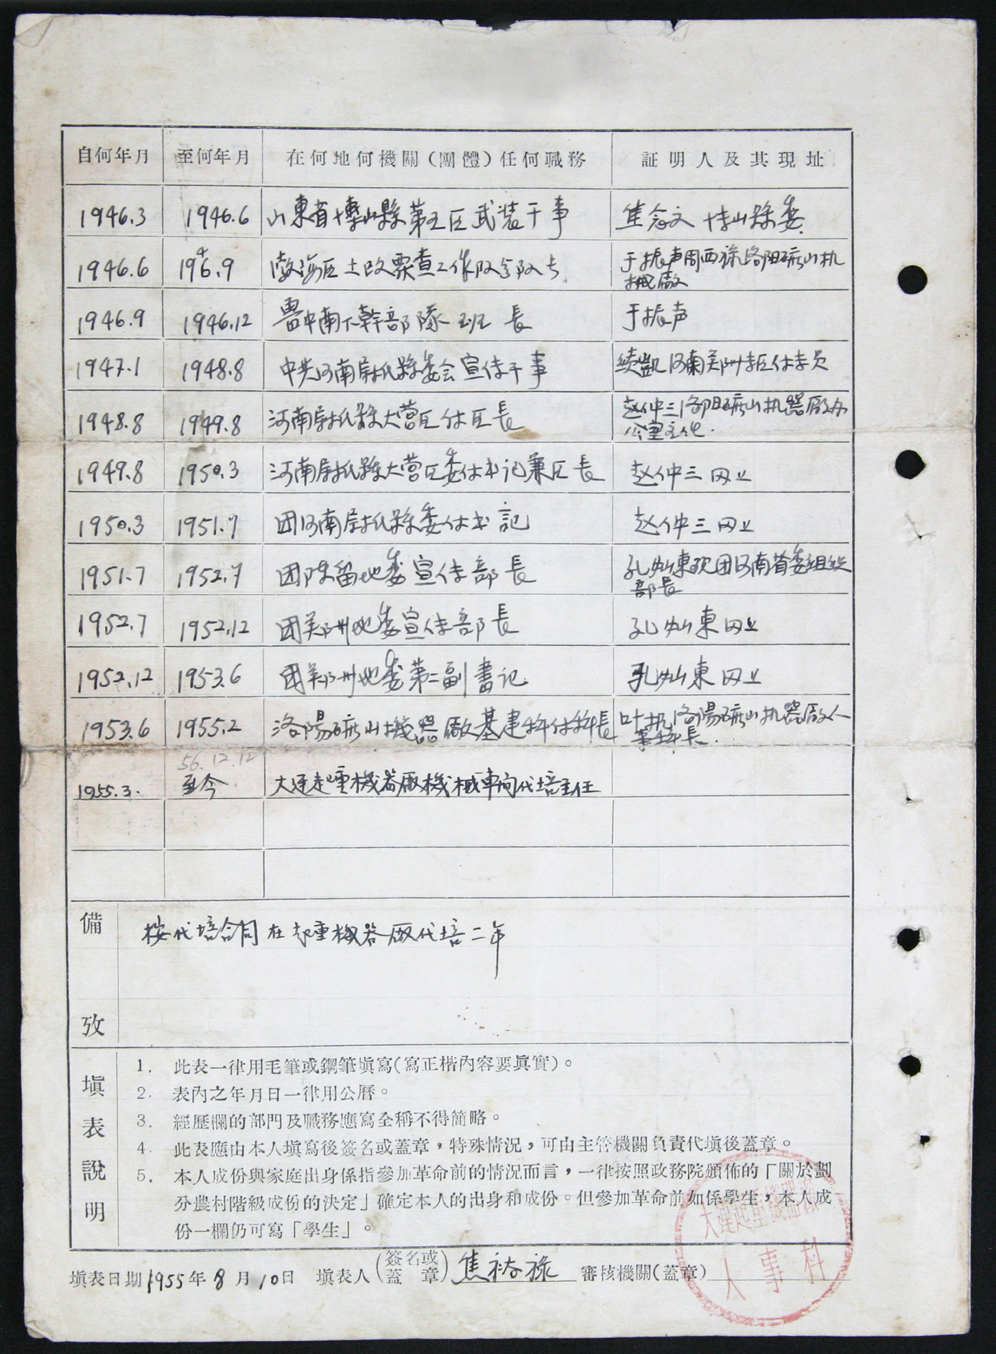 自何年月 至何年月 在何地何機關(團體)任何職務 証明人及其現址
1946.3 1946.6 山東省博山縣第五区武装干事 焦念文 博山縣委
1946.6 1946.9 渤海区土改票查工作队分队长 于振声 洛阳矿山机
械廠
1946.9 1946.12 魯中南下幹部隊 班長 于振声
1947.1 1948.8 中共河南尉氏縣委会宣传干事 河南郑州
1948.8 1949.8 河南尉氏縣大营区付区長 赵仲三洛阳矿山机器廠办
公室主任
1949.8 1950.3 河南尉氏縣大营区委付书记兼区長 赵仲三 同上
1950.3 1951.7 团河南尉氏縣委付书記 赵仲三 同上
1951.7 1952.7 团陈留地委宣传部長 孔灿東 团河南省委组织
部長
1952.7 1952.12 团郑州地委宣传部長 孔灿東 同上
1952.12 1953.6 团郑州地委第二副書记 孔灿東 同上
1953.6 1955.2 洛陽矿山機器廠基建科付科長 洛陽矿山机器廠人
事科長
56.12.12
1955.3. 至今 大連起重機器廠機械車间代培主任
備 按代培合同在起重機器廠代培二年
攷
填表說明
1. 此表一律用毛筆或鋼筆填寫(寫正楷內容要眞實)。
2. 表內之年月日一律用公曆。
3. 經歷欄的部門及職務應寫全稱不得簡略。
4. 此表應由本人填寫後簽名或蓋章，特殊情況，可由主管機關負責代填後蓋章。
5. 本人成份與家庭出身係指參加革命前的情況而言，一律按照政務院頒佈的「關於劃
分農村階級成份的決定」確定本人的出身和成份。但參加革命前如係學生，本人成
份一欄仍可寫「學生」。
填表日期1955年8月10日 填表人(簽名或蓋章)焦裕祿 審核機關(蓋章)
大連起重機器廠
人事科